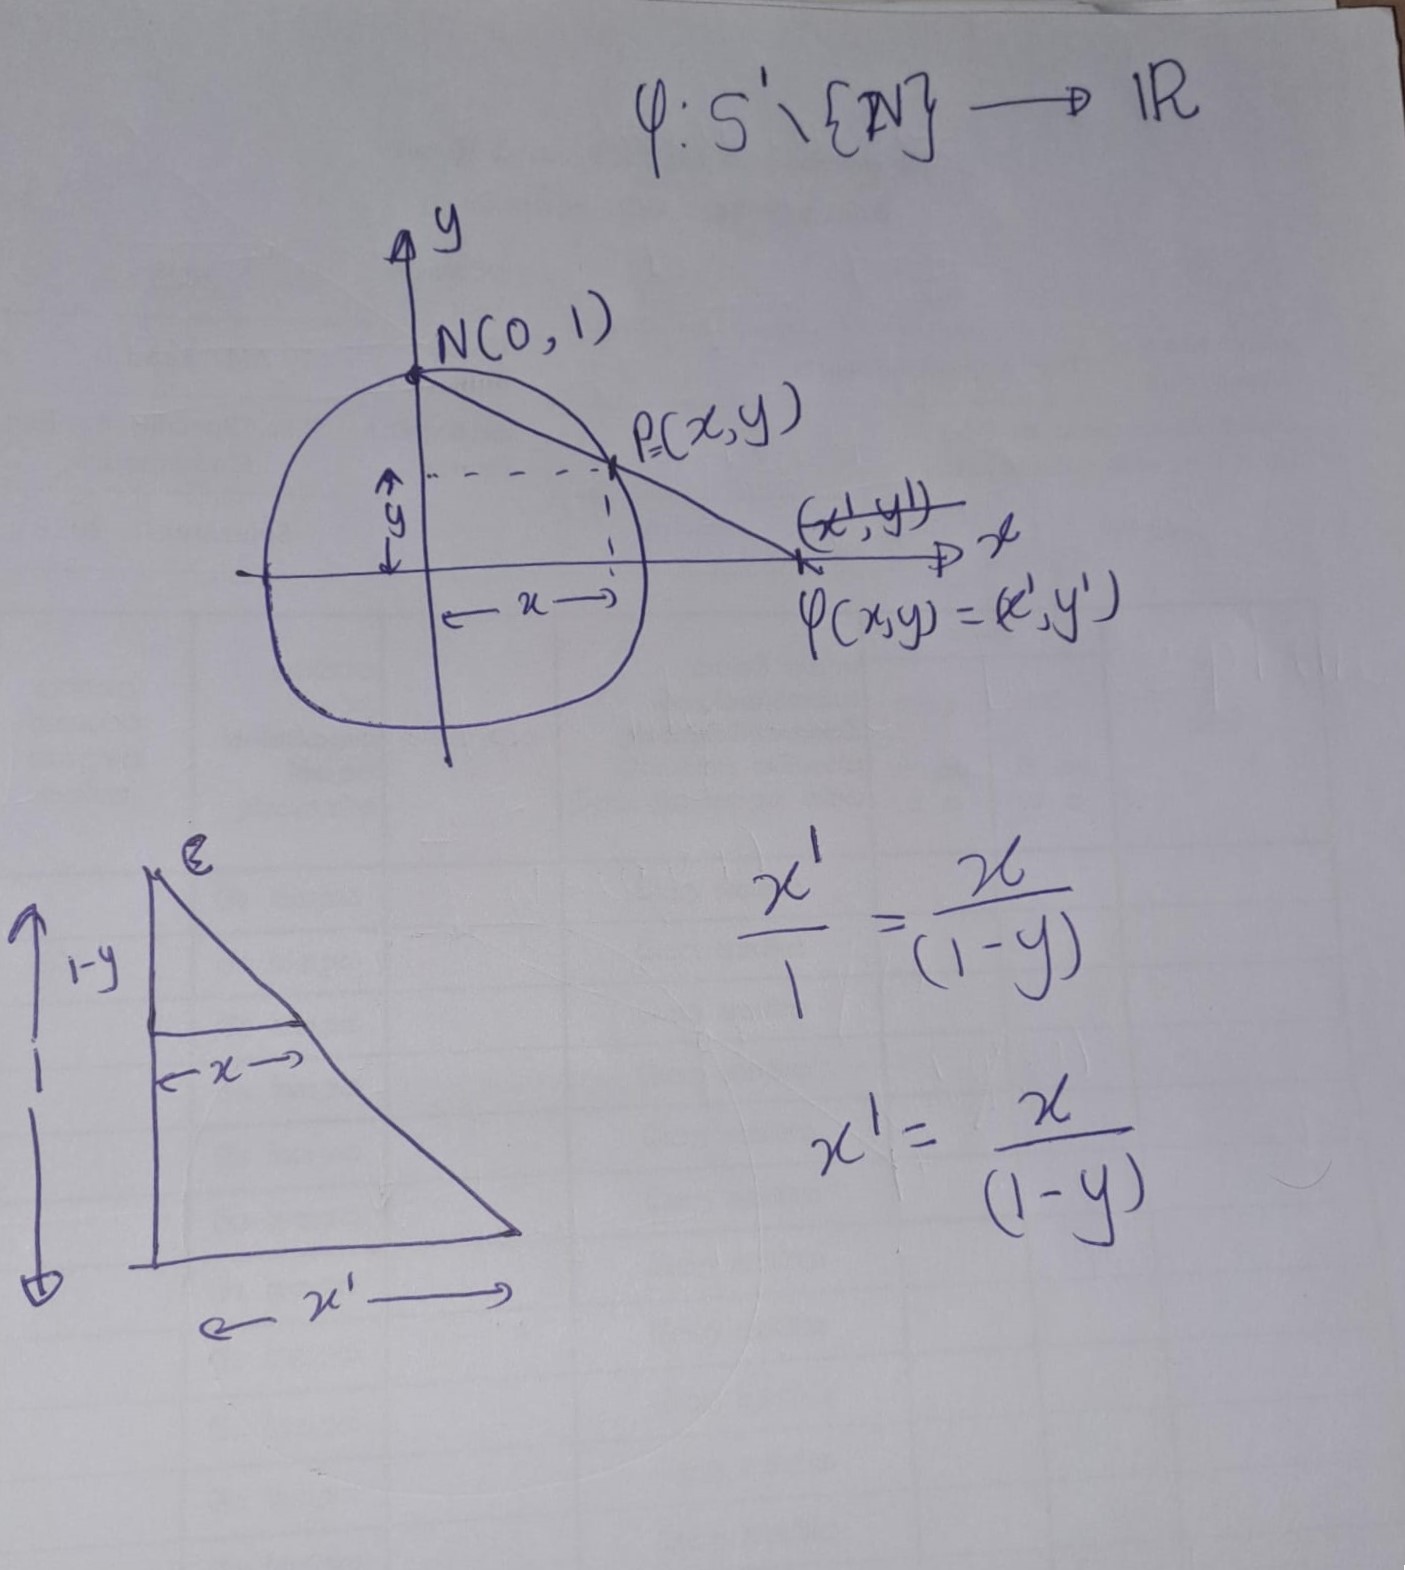 φ: S¹ \ {N} → ℝ
y
N(0, 1)
P=(x,y)
(x', y')
x
y
x
φ(x,y) = (x', y')
1-y
x
1
x'
x'/1 = x/(1-y)
x' = x/(1-y)